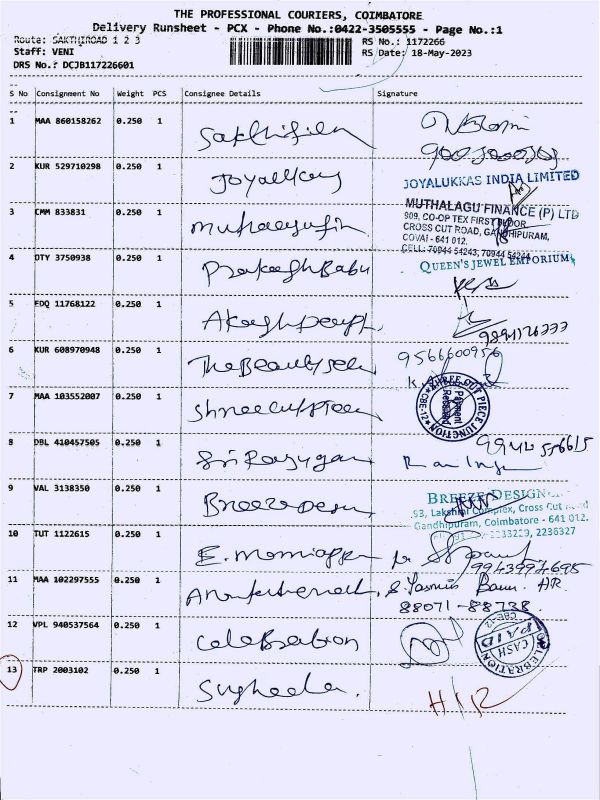 THE PROFESSIONAL COURIERS, COIMBATORE
Delivery Runsheet - PCX - Phone No.:0422-3505555 - Page No.:1
Route: SAKTHIROAD 1 2 3 RS No.: 1172266
Staff: VENI RS Date: 18-May-2023
DRS No.: DCJB117226601
S No Consignment No Weight PCS Consignee Details Signature
1 MAA 860158262 0.250 1
2 KUR 529710298 0.250 1 Joyalukkas JOYALUKKAS INDIA LIMITED
3 CMM 833831 0.250 1 MUTHALAGU FINANCE (P) LTD
909, CO-OP TEX FIRST FLOOR
CROSS CUT ROAD, GANDHIPURAM,
COVAI - 641 012.
CELL: 70944 54243, 70944 54244
4 DTY 3750938 0.250 1 Prakash Babu QUEEN'S JEWEL EMPORIUM
5 EDQ 11768122 0.250 1
6 KUR 608970948 0.250 1 9566600956
7 MAA 103552007 0.250 1 THREE CUT PIECE JUNCTION
CBE-12
Payment Received
8 DBL 410457505 0.250 1 99425 56615
9 VAL 3138350 0.250 1 BREEZE DESIGN
93, Lakshmi Complex, Cross Cut Road
Gandhipuram, Coimbatore - 641 012.
2233229, 2236327
10 TUT 1122615 0.250 1 9943994695
11 MAA 102297555 0.250 1 S. Yasmin Banu. HR
88071-88738
12 VPL 940537564 0.250 1 Celebration CELEBRATION
CBE-12
CASH PAID
13 TRP 2003102 0.250 1 Susheela.